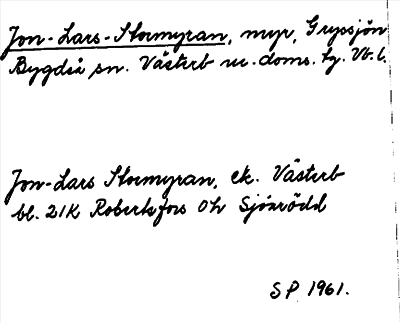 Jon-Lars-Stormyran, myr, Grypsjön
Bygdeå sn. Västerb nr. doms. tg. Vb. l.
Jon-Lars Stormyran, ek. Västerb
bl. 21K Robertsfors 0h Sjöarödd
SP 1961.